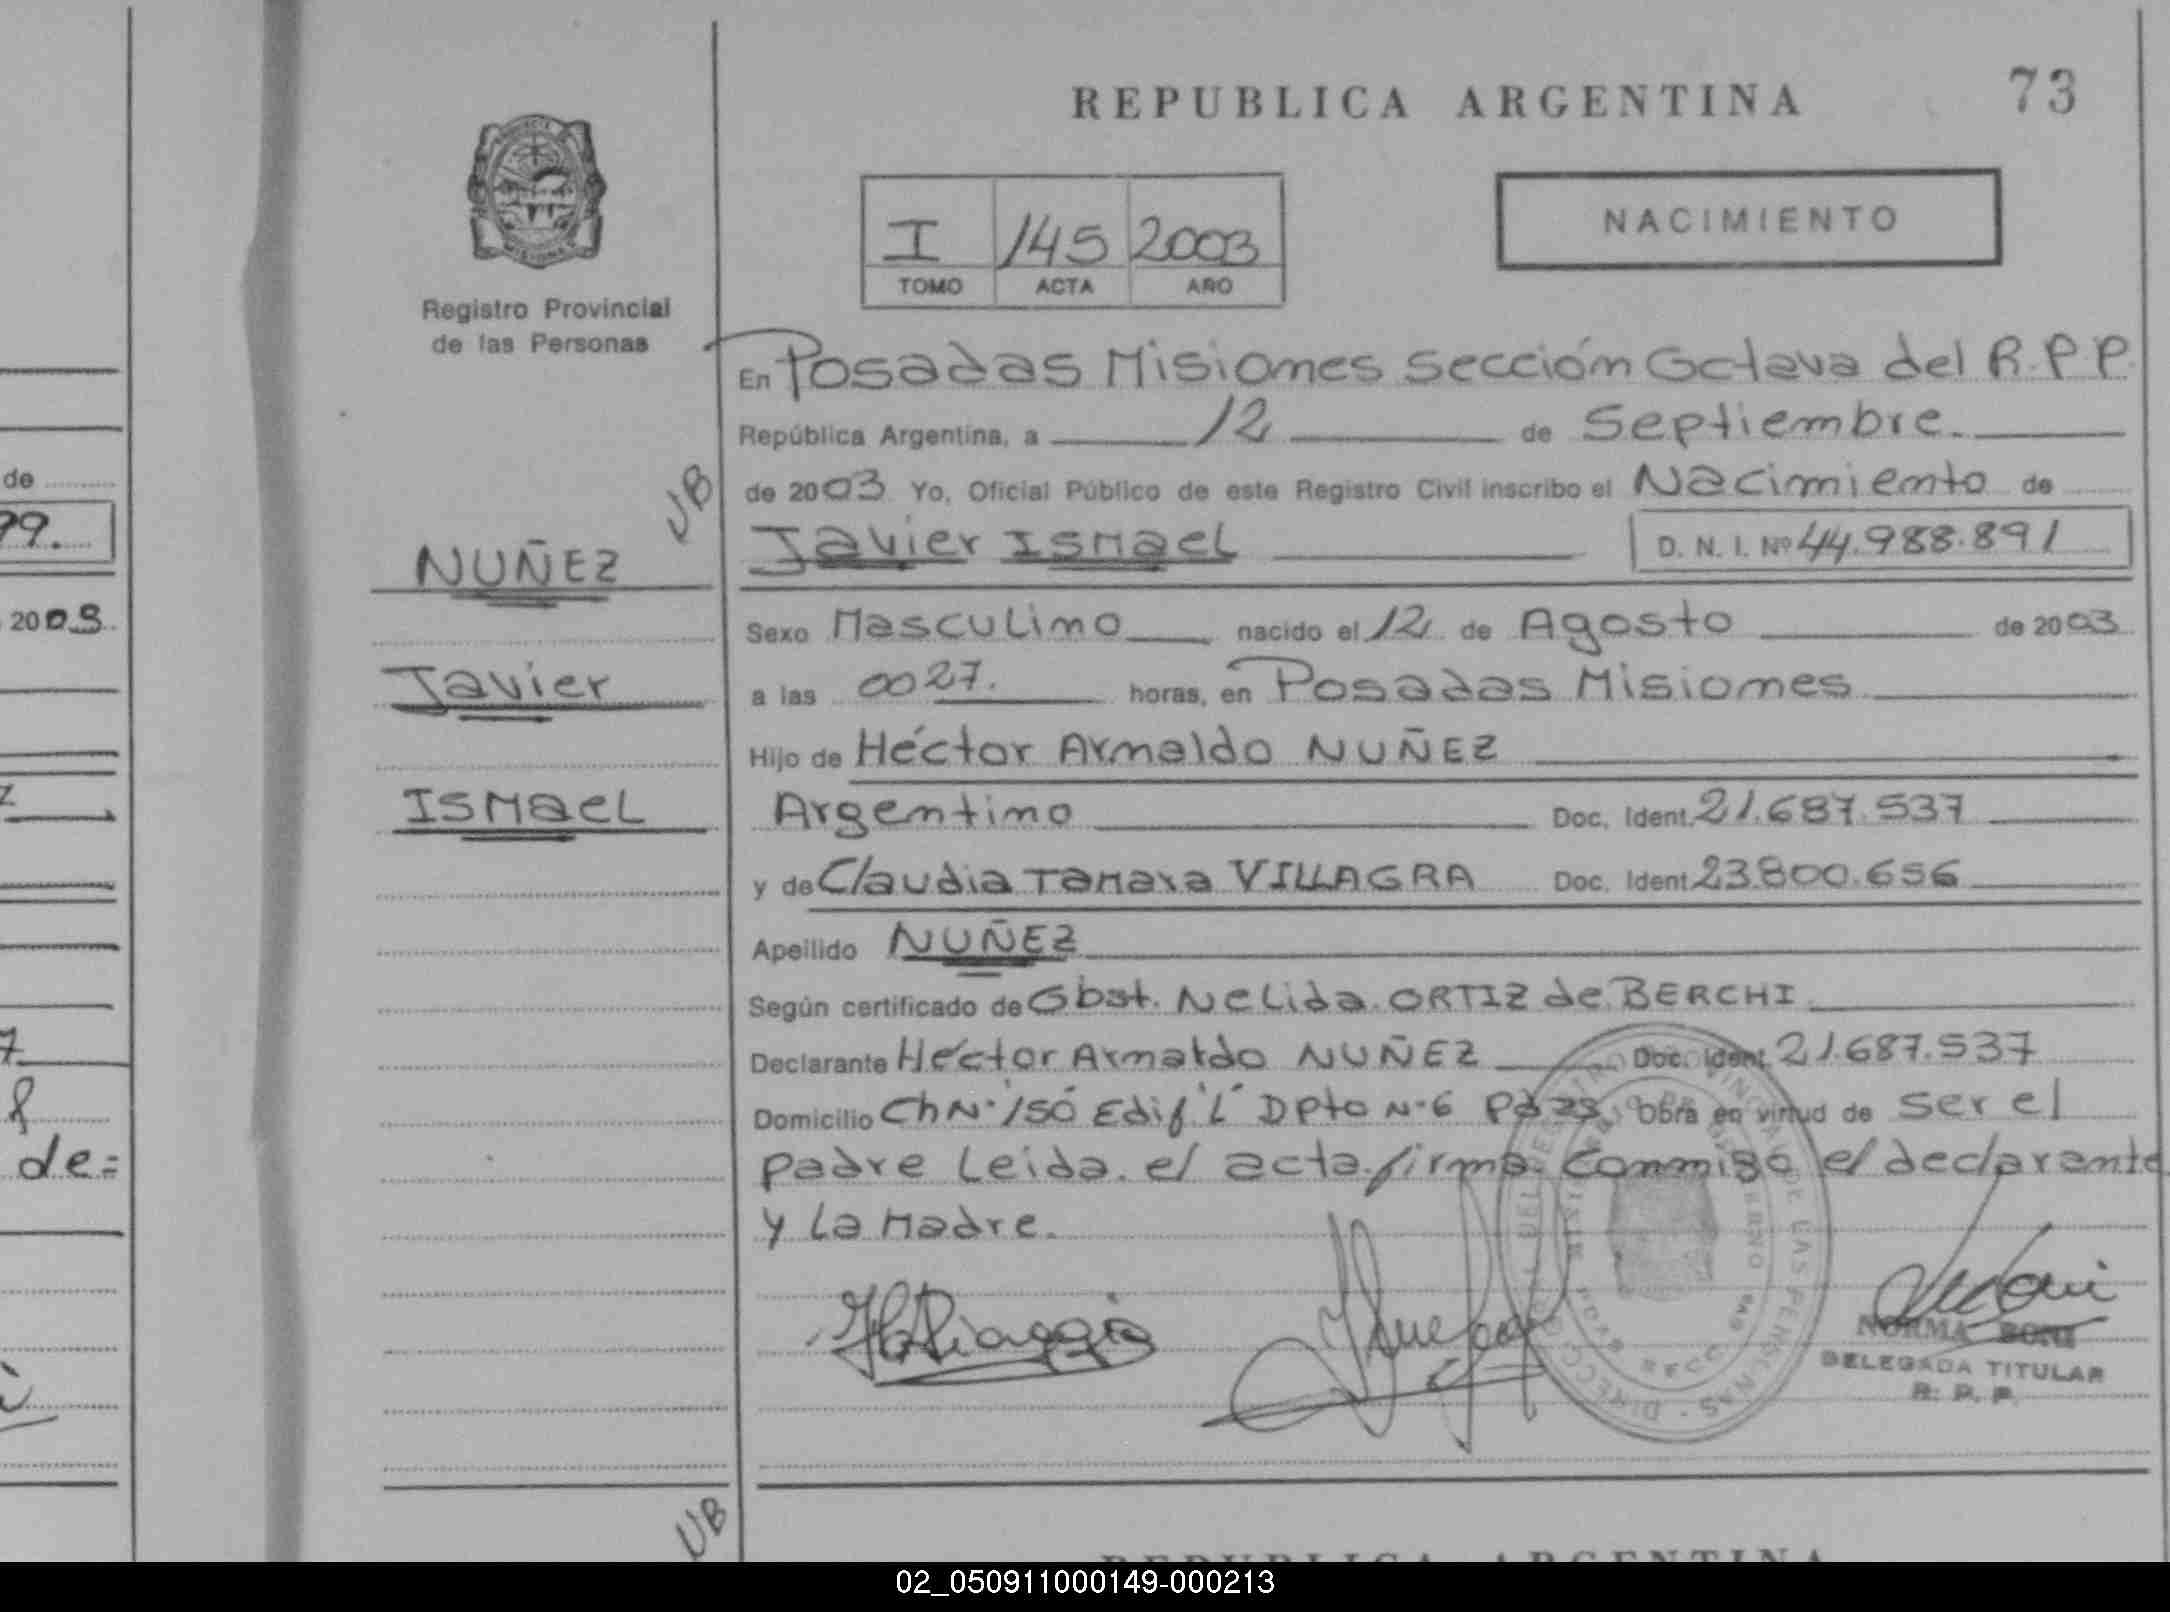 REPUBLICA ARGENTINA
73
I 145 2003
TOMO ACTA AÑO
NACIMIENTO
Registro Provincial
de las Personas
En Posadas Misiones Sección Octava del R.P.P.
República Argentina, a 12 de Septiembre.
de 2003 Yo, Oficial Público de este Registro Civil inscribo el Nacimiento de
Javier Ismael D. N. I. Nº 44.988.891
UB
NUÑEZ
Javier
Ismael
Sexo Masculino nacido el 12 de Agosto de 2003
a las 0027. horas, en Posadas Misiones
Hijo de Héctor Arnaldo NUÑEZ
Argentino Doc. Ident. 21.687.537
y de Claudia Tamara VILLAGRA Doc. Ident 23.800.656
Apellido NUÑEZ
Según certificado de Obst. Nelida ORTIZ de BERCHI
Declarante Héctor Arnaldo NUÑEZ Doc. Ident. 21.687.537
Domicilio Ch N° 150 Edif "L" Dpto N° 6 Obra en virtud de ser el
padre Leida el acta firma Conmigo el declarante
y La Madre.
NORMA BONI
DELEGADA TITULAR
R. P. P.
UB
de
99.
2003
7
de=
REPUBLICA ARGENTINA
02_050911000149-000213